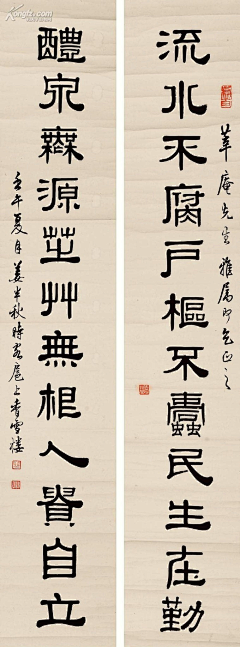 流水不腐戶樞不蠹民生在勤
華庵先生雅屬即乞正之
醴泉無源芝艸無根人貴自立
壬午夏月姜半秋時客扈上香雪樓